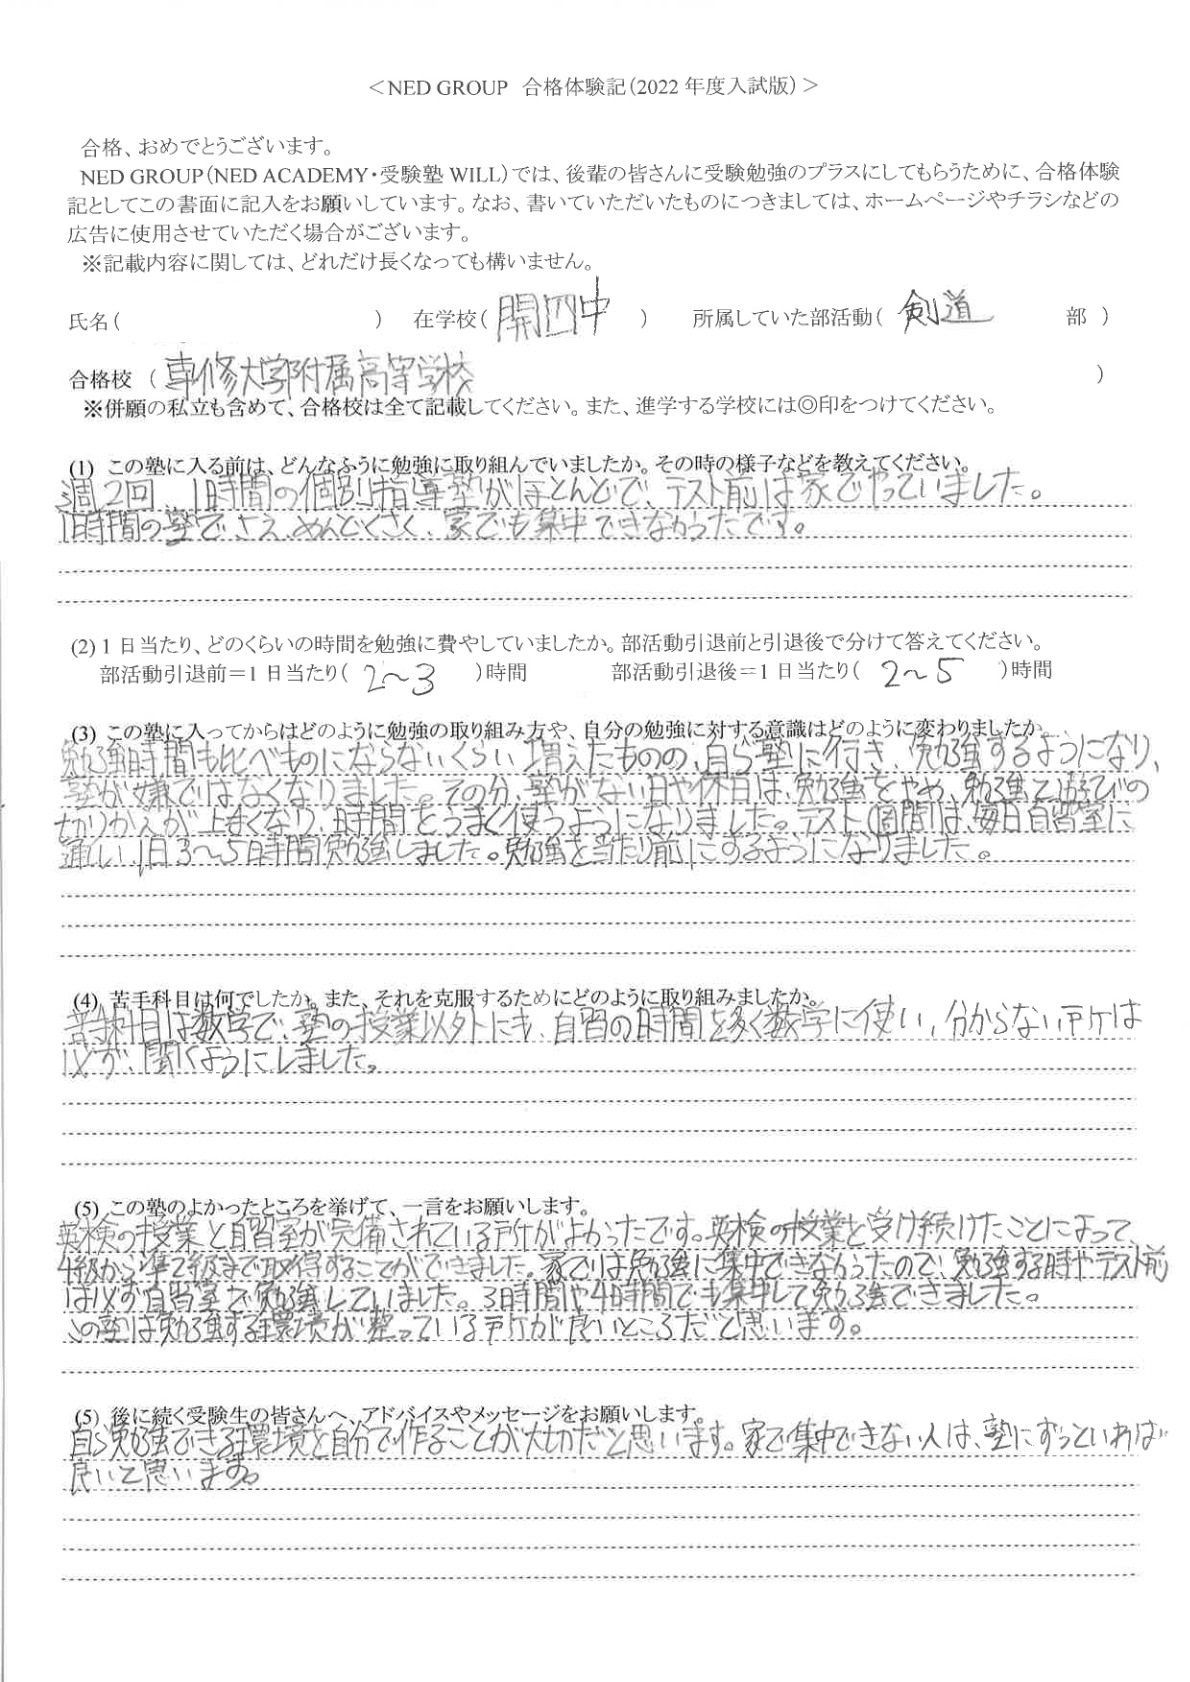 ＜NED GROUP 合格体験記（2022 年度入試版）＞
合格、おめでとうございます。
NED GROUP（NED ACADEMY・受験塾 WILL）では、後輩の皆さんに受験勉強のプラスにしてもらうために、合格体験
記としてこの書面に記入をお願いしています。なお、書いていただいたものにつきましては、ホームページやチラシなどの
広告に使用させていただく場合がございます。
※記載内容に関しては、どれだけ長くなっても構いません。
氏名（ ） 在学校（ 開四中 ） 所属していた部活動（ 剣道 部 ）
合格校 （ 専修大学附属高等学校 ）
※併願の私立も含めて、合格校は全て記載してください。また、進学する学校には◎印をつけてください。
(1) この塾に入る前は、どんなふうに勉強に取り組んでいましたか。その時の様子などを教えてください。
週2回、1時間の個別指導塾がほとんどで、テスト前は家でやっていました。
1時間の塾でさえ、めんどくさく、家でも集中できなかったです。
(2) 1 日当たり、どのくらいの時間を勉強に費やしていましたか。部活動引退前と引退後で分けて答えてください。
部活動引退前＝1 日当たり（ 2〜3 ）時間 部活動引退後＝1 日当たり（ 2〜5 ）時間
(3) この塾に入ってからはどのように勉強の取り組み方や、自分の勉強に対する意識はどのように変わりましたか。
勉強時間も比べものにならないくらい増えたものの、自ら塾に行き、勉強するようになり、
塾が嫌ではなくなりました。その分、塾がない日や休日は、勉強をやめ、勉強と遊びの
切りかえが上まくなり、時間をうまく使うようになりました。テスト1週間は、毎日自習室に
通い、1日3〜5時間勉強しました。勉強を当たり前にするようになりました。
(4) 苦手科目は何でしたか。また、それを克服するためにどのように取り組みましたか。
苦手科目は数学で、塾の授業以外にも、自習の時間を多く数学に使い、分からない所は
必ず、聞くようにしました。
(5) この塾のよかったところを挙げて、一言をお願いします。
英検の授業と自習室が完備されている所がよかったです。英検の授業を受け続けたことによって、
4級から準2級まで取得することができました。家では勉強に集中できなかったので、勉強する時やテスト前
は必ず自習室で勉強していました。3時間や4時間でも集中して勉強できました。
この塾は勉強する環境が整っている所が良いところだと思います。
(5) 後に続く受験生の皆さんへ、アドバイスやメッセージをお願いします。
自ら勉強できる環境を自分で作ることが大切だと思います。家で集中できない人は、塾にずっといれば
良いと思います。